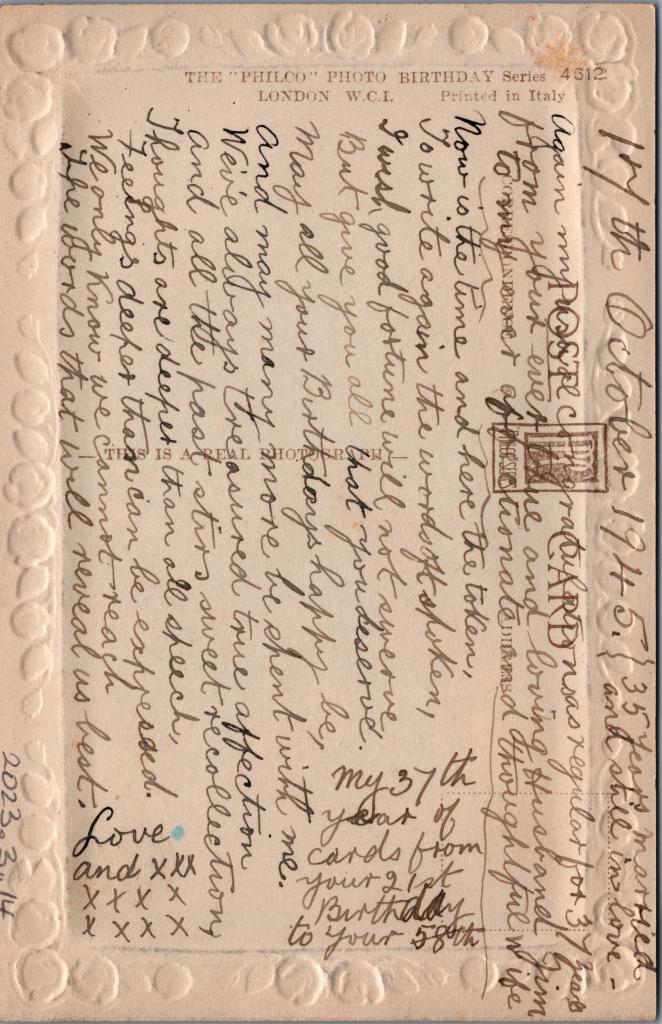 THE "PHILCO" PHOTO BIRTHDAY Series 4612
LONDON W.C.1. Printed in Italy
POST CARD
THIS IS A REAL PHOTOGRAPH
17th October 1945. { 35 years married
{ and still in love -
Again my congratulations as regular for 37 years
from your ever true and loving Husband Jim
to my ever affectionate and thoughtful Wife
Now is the time and here the token,
To write again the words oft spoken,
I wish good fortune will not swerve
But give you all that you deserve.
May all your Birthdays happy be,
And may many more be spent with me.
We've always treasured true affection
And all the past stirs sweet recollection,
Thoughts are deeper than all speech,
Feelings deeper than can be expressed.
We only know we cannot reach
The words that will reveal us best.
My 37th
year of
cards from
your 21st
Birthday
to your 58th
Love
and xxx
x x x x
x x x x
2023.3.14